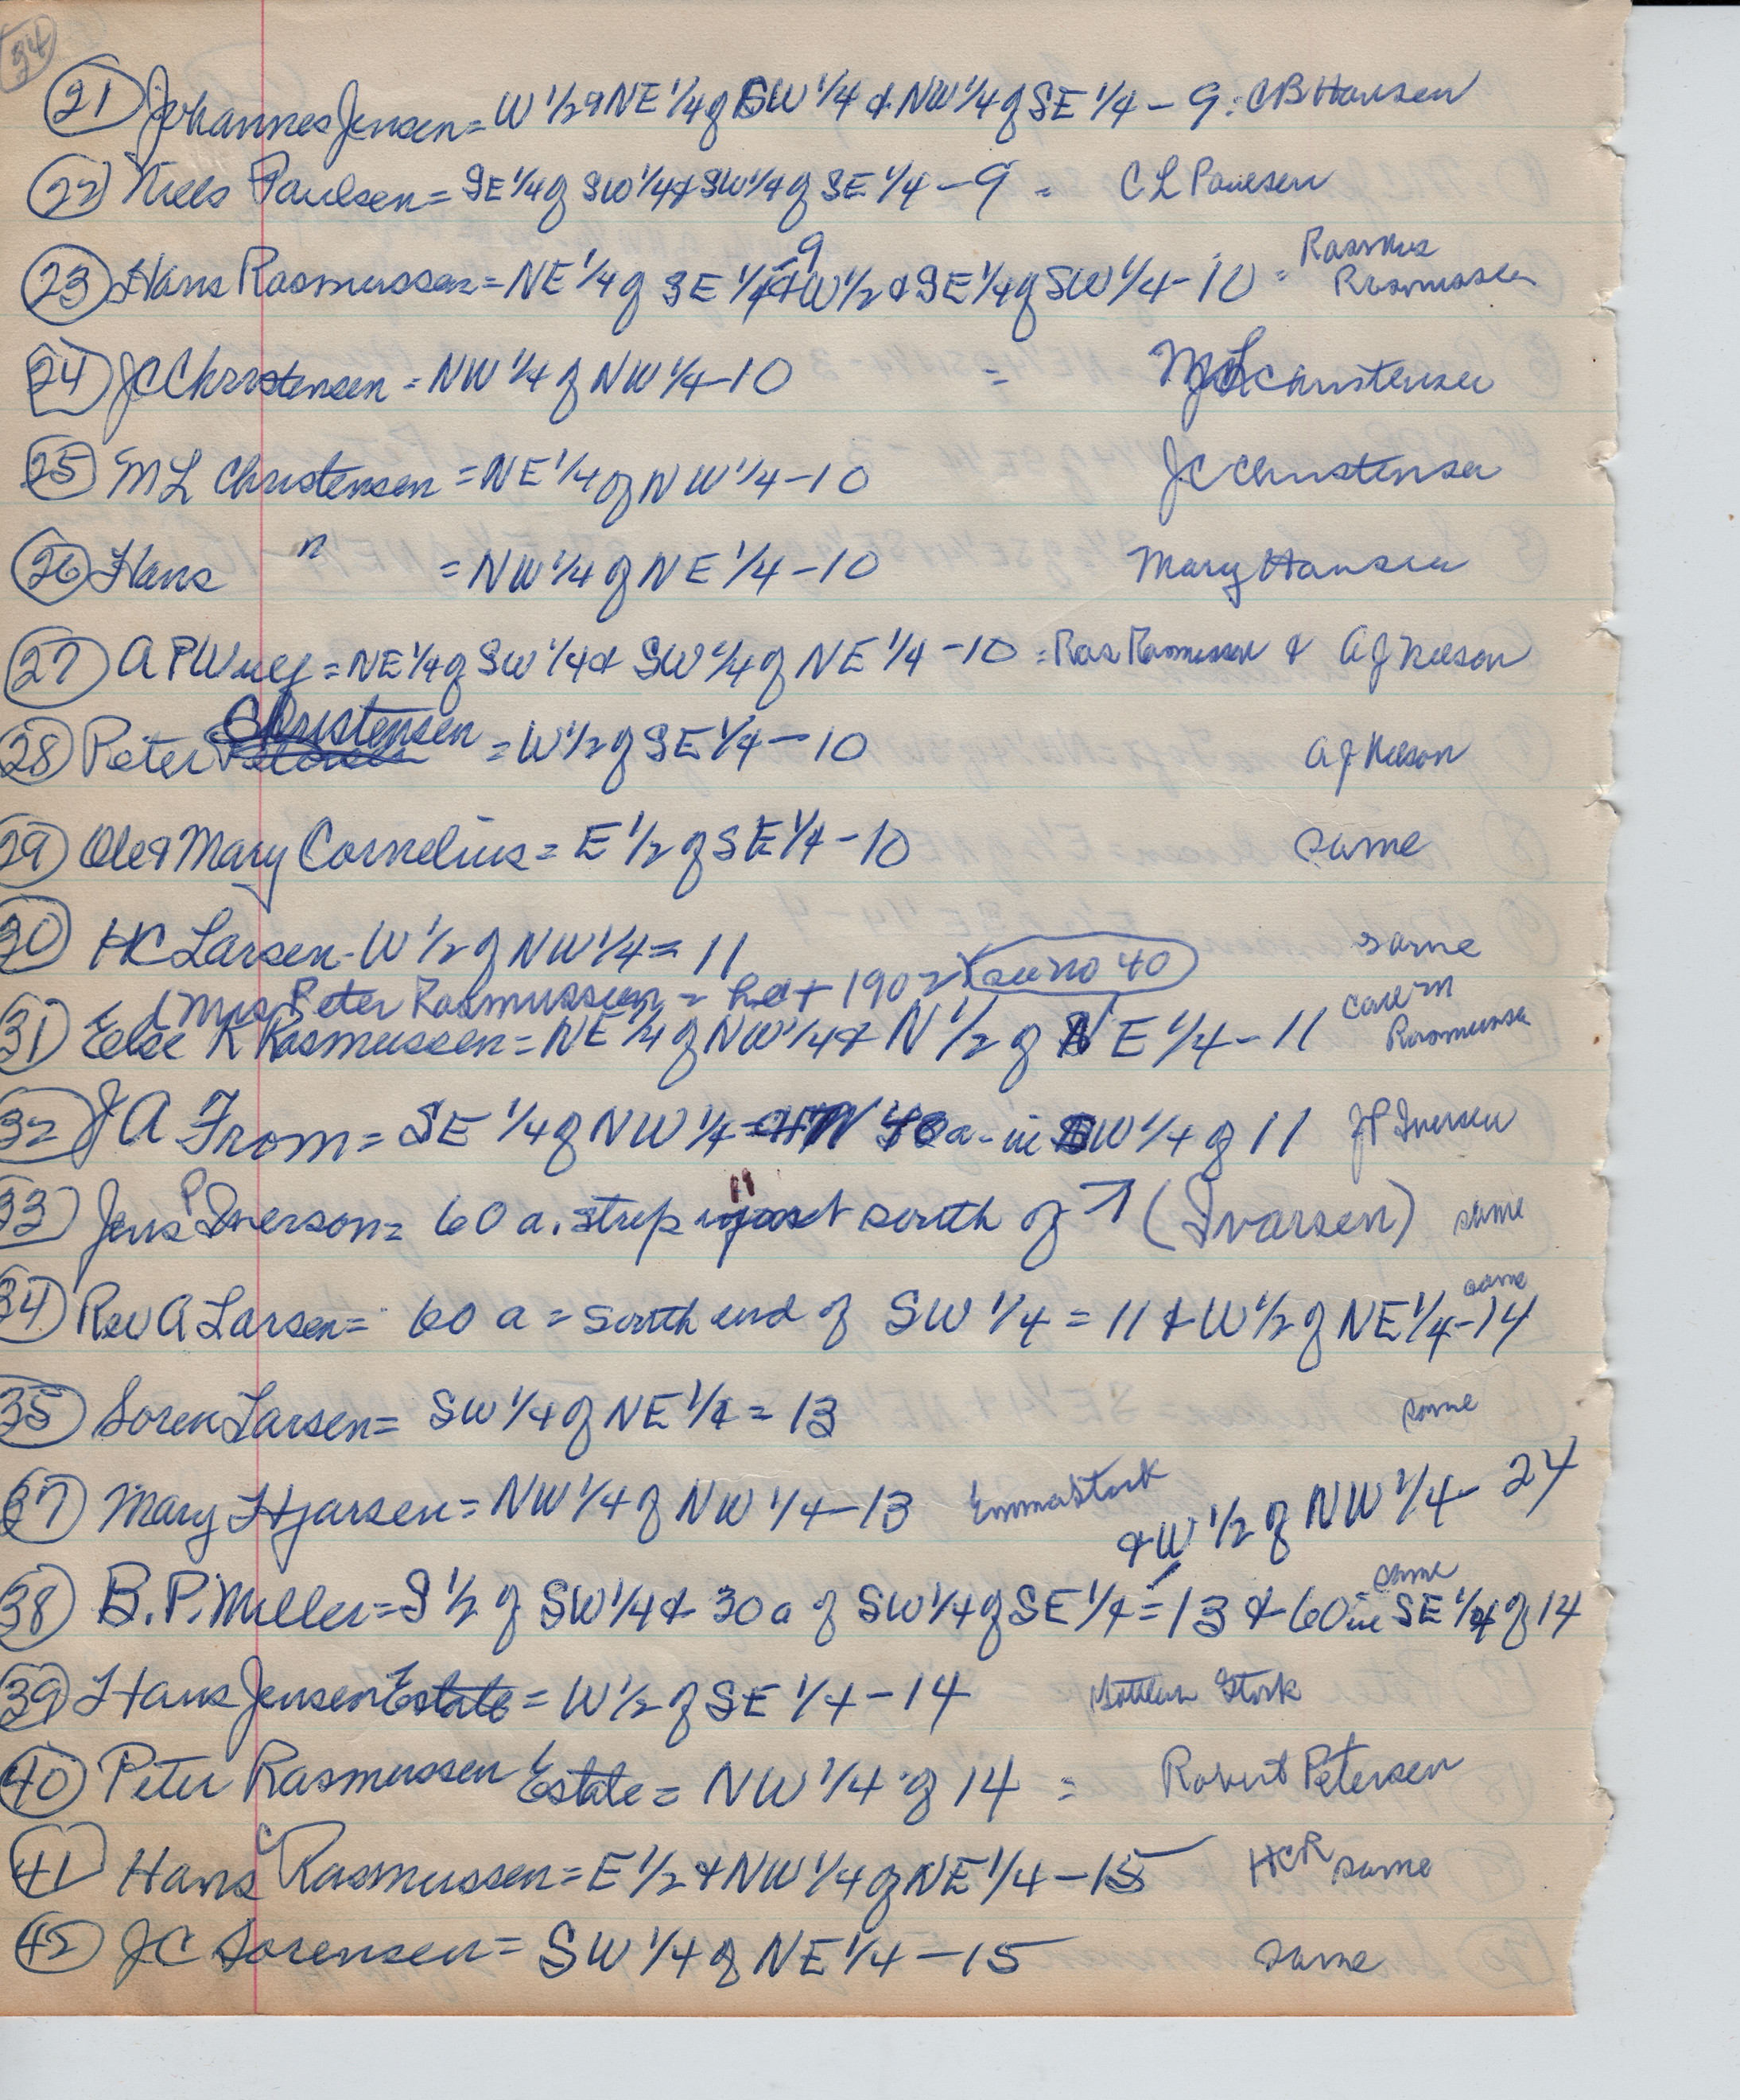 94
21 Johannes Jensen = W 1/2 & NE 1/4 of SW 1/4 & NW 1/4 of SE 1/4 - 9. CB Hansen
22 Niels Paulsen = SE 1/4 of SW 1/4 & SW 1/4 of SE 1/4 - 9 = C L Paulsen
23 Hans Rasmussen = NE 1/4 of SE 1/4 -9 & W 1/2 & SE 1/4 of SW 1/4 - 10 = Rasmus Rasmussen
24 JC Christensen = NW 1/4 of NW 1/4 - 10 = ML Christensen
25 ML Christensen = NE 1/4 of NW 1/4 - 10 JC Christensen
26 Hans " = NW 1/4 of NE 1/4 - 10 Mary Hansen
27 A P Wulf = NE 1/4 of SW 1/4 & SW 1/4 of NE 1/4 - 10 = Ras Rasmussen & A J Nelson
28 Peter Christensen = W 1/2 of SE 1/4 - 10 A J Nelson
29 Ole & Mary Cornelius = E 1/2 of SE 1/4 - 10 same
30 HC Larsen - W 1/2 of NW 1/4 = 11 same
(Mrs Peter Rasmussen = 1902 (see no 40)
31 Else K Rasmussen = NE 1/4 of NW 1/4 & N 1/2 of NE 1/4 - 11 Rasmussen
32 J A From = SE 1/4 of NW 1/4 a - in SW 1/4 of 11 JP Iversen
33 Jens P Iverson = 60 a. strip just south of ↑ (Ivarsen) same
34 Rev A Larsen = 60 a = south end of SW 1/4 = 11 & W 1/2 of NE 1/4 - 14 same
35 Soren Larsen = SW 1/4 of NE 1/4 = 13 same
37 Mary Hjarsen = NW 1/4 of NW 1/4 - 13 Emma Stork
& W 1/2 of NW 1/4 - 24
38 B. P. Miller = S 1/2 of SW 1/4 & 30 a of SW 1/4 of SE 1/4 = 13 & 60 in SE 1/4 of 14 same
39 Hans Jensen Estate = W 1/2 of SE 1/4 - 14 Stork
40 Peter Rasmussen Estate = NW 1/4 of 14 = Robert Petersen
41 Hans C Rasmussen = E 1/2 & NW 1/4 of NE 1/4 - 15 HCR same
42 JC Sorensen = SW 1/4 of NE 1/4 - 15 same